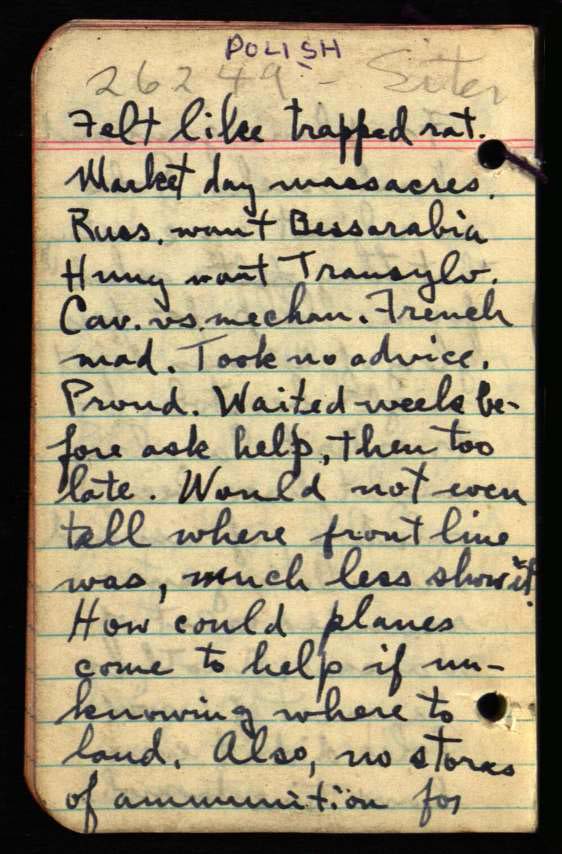 POLISH
26249 - Siter
Felt like trapped rat.
Market day massacres.
Russ. want Bessarabia
Hung want Transylv.
Cav. vs. mechan. French
mad. Took no advice.
Proud. Waited week be-
fore ask help, then too
late. Would not even
tell where front line
was, much less show it.
How could planes
come to help if un-
knowing where to
land. Also, no stores
of ammunition for